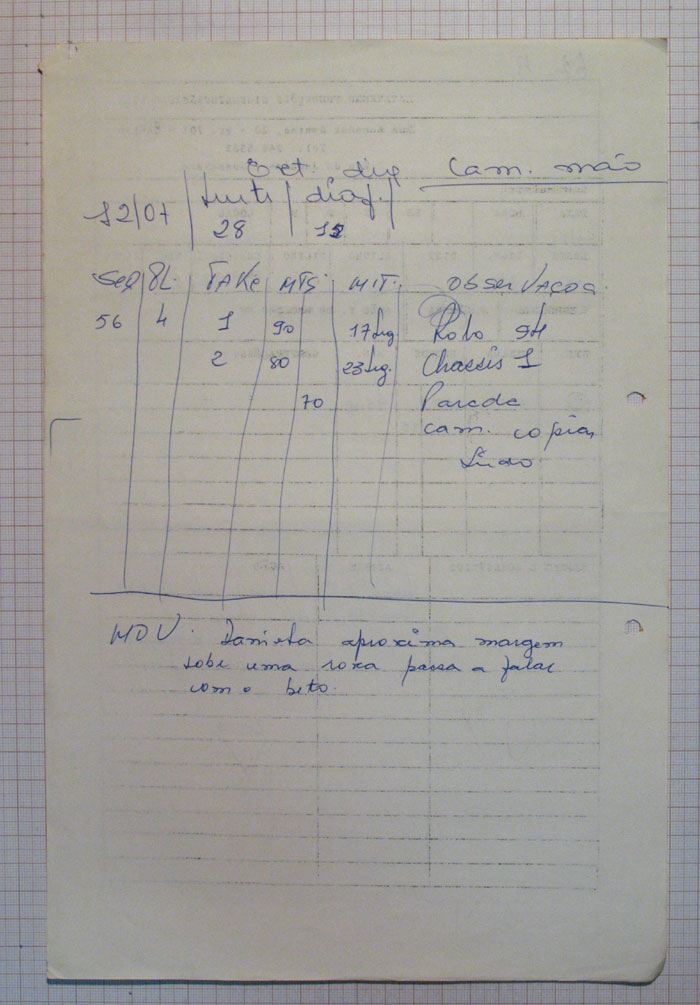 Ext dia Cam. mão
12/07 lente diaf.
28
SEQ PL. TAKE MTS. MIT. OBSERVAÇOS.
56 4 1 90 17seg. Rolo 9A
2 80 23seg. Chassis 1
70 Parede
cam. copias
Som
MOV. aproxima margem
sobe uma roxa passa a falar
com o beto.